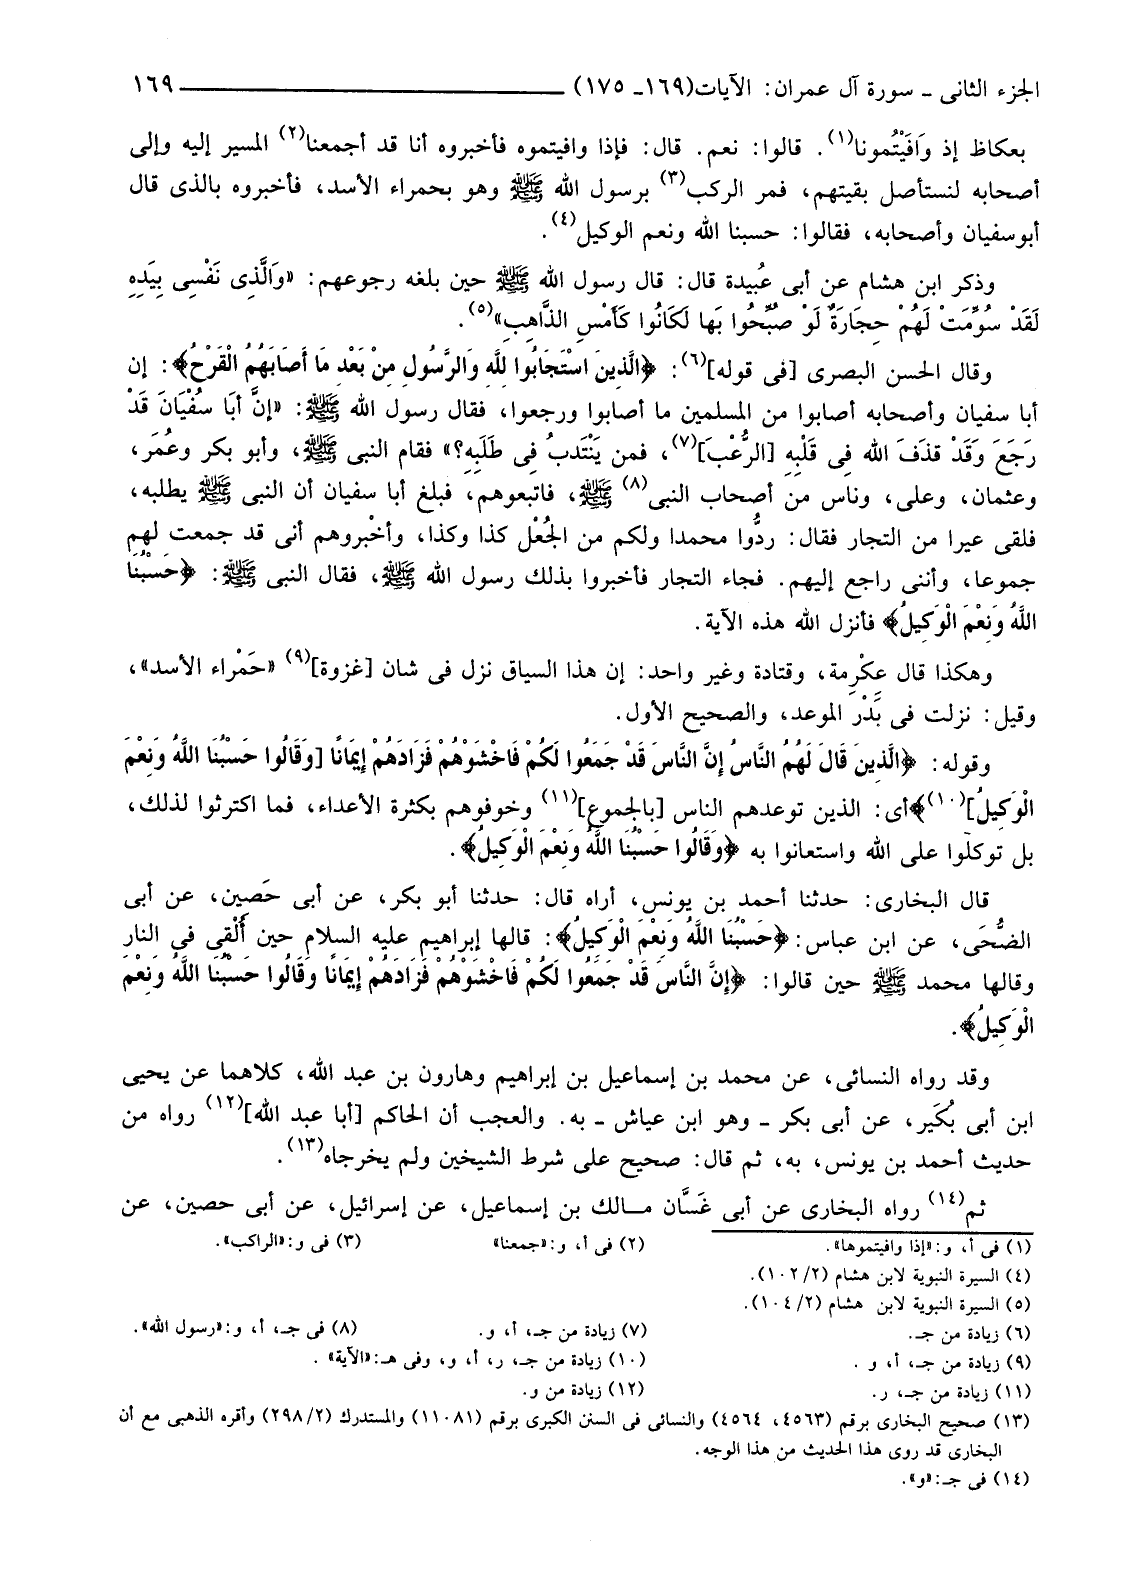 الجزء الثانى ـ سورة آل عمران: الآيات(١٦٩ـ ١٧٥) ١٦٩
بعكاظ إذ وَافَيْتُمونا(١). قالوا: نعم. قال: فإذا وافيتموه فأخبروه أنا قد أجمعنا(٢) المسير إليه وإلى
أصحابه لنستأصل بقيتهم، فمر الركب(٣) برسول الله ﷺ وهو بحمراء الأسد، فأخبروه بالذى قال
أبوسفيان وأصحابه، فقالوا: حسبنا الله ونعم الوكيل(٤).
وذكر ابن هشام عن أبى عُبيدة قال: قال رسول الله ﷺ حين بلغه رجوعهم: «وَالَّذِى نَفْسِى بِيَدِهِ
لَقَدْ سُوِّمَتْ لَهُمْ حِجَارَةٌ لَوْ صُبِّحُوا بَها لَكَانُوا كَأَمْسِ الذَّاهِبِ»(٥).
وقال الحسن البصرى [فى قوله](٦): ﴿الَّذِينَ اسْتَجَابُوا لِلَّهِ وَالرَّسُولِ مِنْ بَعْدِ مَا أَصَابَهُمُ الْقَرْحُ﴾: إن
أبا سفيان وأصحابه أصابوا من المسلمين ما أصابوا ورجعوا، فقال رسول الله ﷺ: «إنَّ أبَا سُفْيَانَ قَدْ
رَجَعَ وَقَدْ قذَفَ الله فِى قَلْبِهِ [الرُّعْبَ](٧)، فمن يَنْتَدبُ فِى طَلَبِهِ؟» فقام النبى ﷺ، وأبو بكر وعُمَر،
وعثمان، وعلى، وناس من أصحاب النبى(٨) ﷺ، فاتبعوهم، فبلغ أبا سفيان أن النبى ﷺ يطلبه،
فلقى عيرا من التجار فقال: ردُّوا محمدا ولكم من الجُعْل كذا وكذا، وأخْبروهم أنى قد جمعت لهم
جموعا، وأننى راجع إليهم. فجاء التجار فأخبروا بذلك رسول الله ﷺ، فقال النبى ﷺ: ﴿حَسْبُنَا
اللَّهُ وَنِعْمَ الْوَكِيلُ﴾ فأنزل الله هذه الآية.
وهكذا قال عِكْرِمة، وقتادة وغير واحد: إن هذا السياق نزل فى شان [غزوة](٩) «حَمْراء الأسد»،
وقيل: نزلت فى بَدْر الموعد، والصحيح الأول.
وقوله: ﴿الَّذِينَ قَالَ لَهُمُ النَّاسُ إِنَّ النَّاسَ قَدْ جَمَعُوا لَكُمْ فَاخْشَوْهُمْ فَزَادَهُمْ إِيمَانًا [وَقَالُوا حَسْبُنَا اللَّهُ وَنِعْمَ
الْوَكِيلُ](١٠)﴾أى: الذين توعدهم الناس [بالجموع](١١) وخوفوهم بكثرة الأعداء، فما اكترثوا لذلك،
بل توكلوا على الله واستعانوا به ﴿وَقَالُوا حَسْبُنَا اللَّهُ وَنِعْمَ الْوَكِيلُ﴾.
قال البخارى: حدثنا أحمد بن يونس، أراه قال: حدثنا أبو بكر، عن أبى حَصِين، عن أبى
الضُّحَى، عن ابن عباس: ﴿حَسْبُنَا اللَّهُ وَنِعْمَ الْوَكِيلُ﴾: قالها إبراهيم عليه السلام حين أُلْقِى فى النار
وقالها محمد ﷺ حين قالوا: ﴿إِنَّ النَّاسَ قَدْ جَمَعُوا لَكُمْ فَاخْشَوْهُمْ فَزَادَهُمْ إِيمَانًا وَقَالُوا حَسْبُنَا اللَّهُ وَنِعْمَ
الْوَكِيلُ﴾.
وقد رواه النسائى، عن محمد بن إسماعيل بن إبراهيم وهارون بن عبد الله، كلاهما عن يحيى
ابن أبى بُكَير، عن أبى بكر ـ وهو ابن عياش ـ به. والعجب أن الحاكم [أبا عبد الله](١٢) رواه من
حديث أحمد بن يونس، به، ثم قال: صحيح على شرط الشيخين ولم يخرجاه(١٣).
ثم(١٤) رواه البخارى عن أبى غَسَّان مـالك بن إسماعيل، عن إسرائيل، عن أبى حصين، عن
(١) فى أ، و:«إذا وافيتموها». (٢) فى أ، و:«جمعنا» (٣) فى و:«الراكب».
(٤) السيرة النبوية لابن هشام (١٠٢/٢).
(٥) السيرة النبوية لابن هشام (١٠٤/٢).
(٦) زيادة من جـ. (٧) زيادة من جـ، أ، و. (٨) فى جـ، أ، و:«رسول الله».
(٩) زيادة من جـ، أ، و . (١٠) زيادة من جـ، ر، أ، و، وفى هـ:«الآية» .
(١١) زيادة من جـ، ر. (١٢) زيادة من و.
(١٣) صحيح البخارى برقم (٤٥٦٣، ٤٥٦٤) والنسائى فى السنن الكبرى برقم (١١٠٨١) والمستدرك (٢٩٨/٢) وأقره الذهبى مع أن
البخارى قد روى هذا الحديث من هذا الوجه.
(١٤) فى جـ:«و».